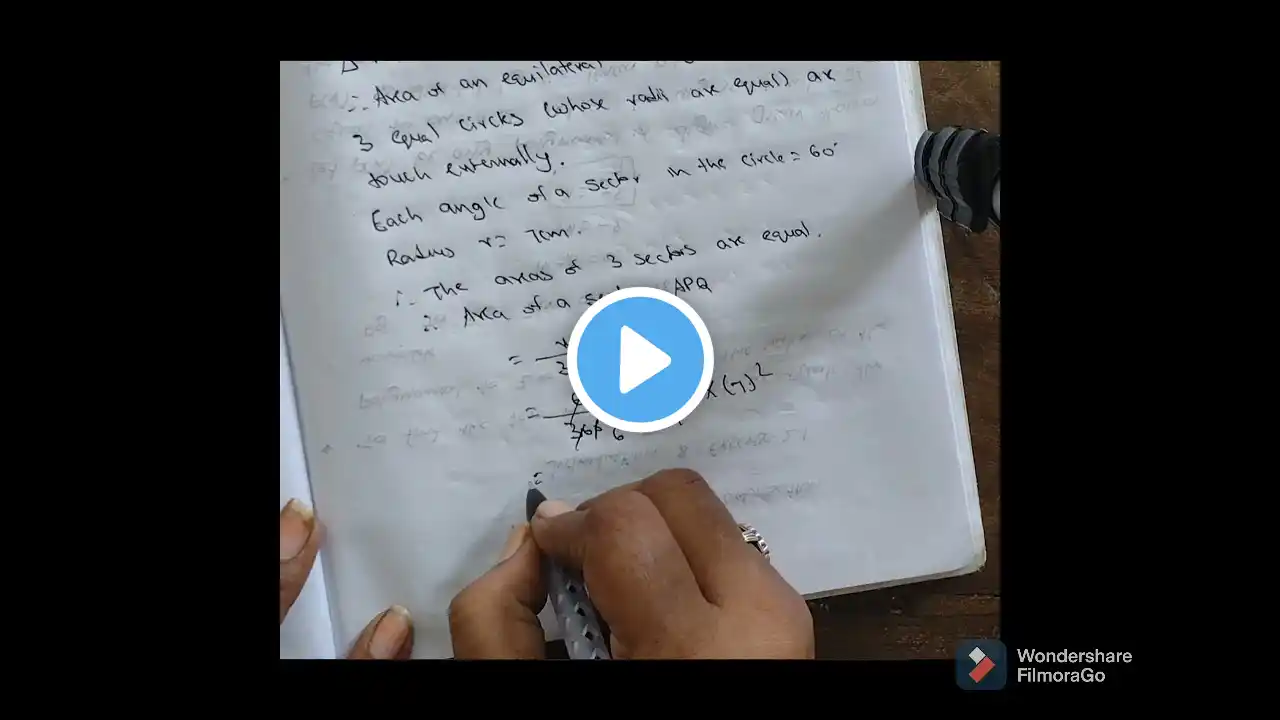 ∴ Area of an equilateral
3 equal circles (whose radii are equal) are
touch externally.
Each angle of a sector in the circle = 60°
Radius r = 7cm.
∴ The areas of 3 sectors are equal.
∴ Area of a APQ
=
= 360 6 × (7)²
=
Wondershare
FilmoraGo